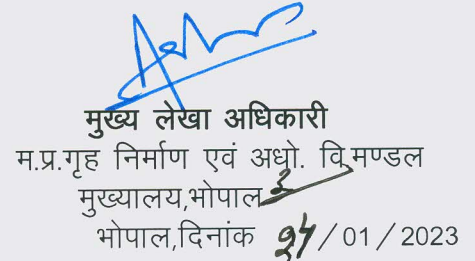 मुख्य लेखा अधिकारी
म.प्र.गृह निर्माण एवं अधो. वि.मण्डल
मुख्यालय,भोपाल
भोपाल,दिनांक 24/01/2023